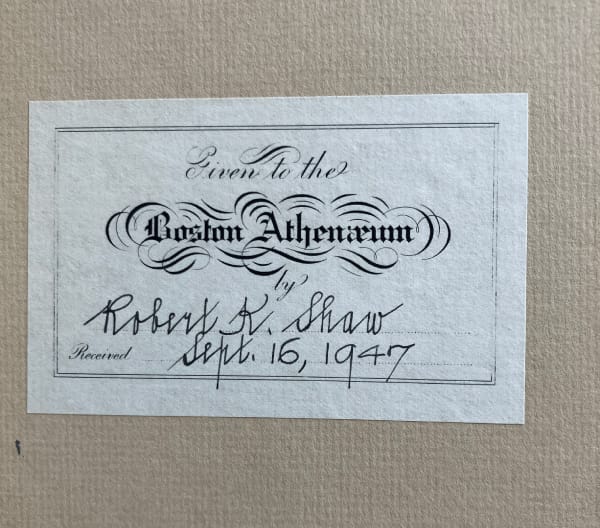 Given to the
Boston Athenæum
by
Robert K. Shaw
Received Sept. 16, 1947